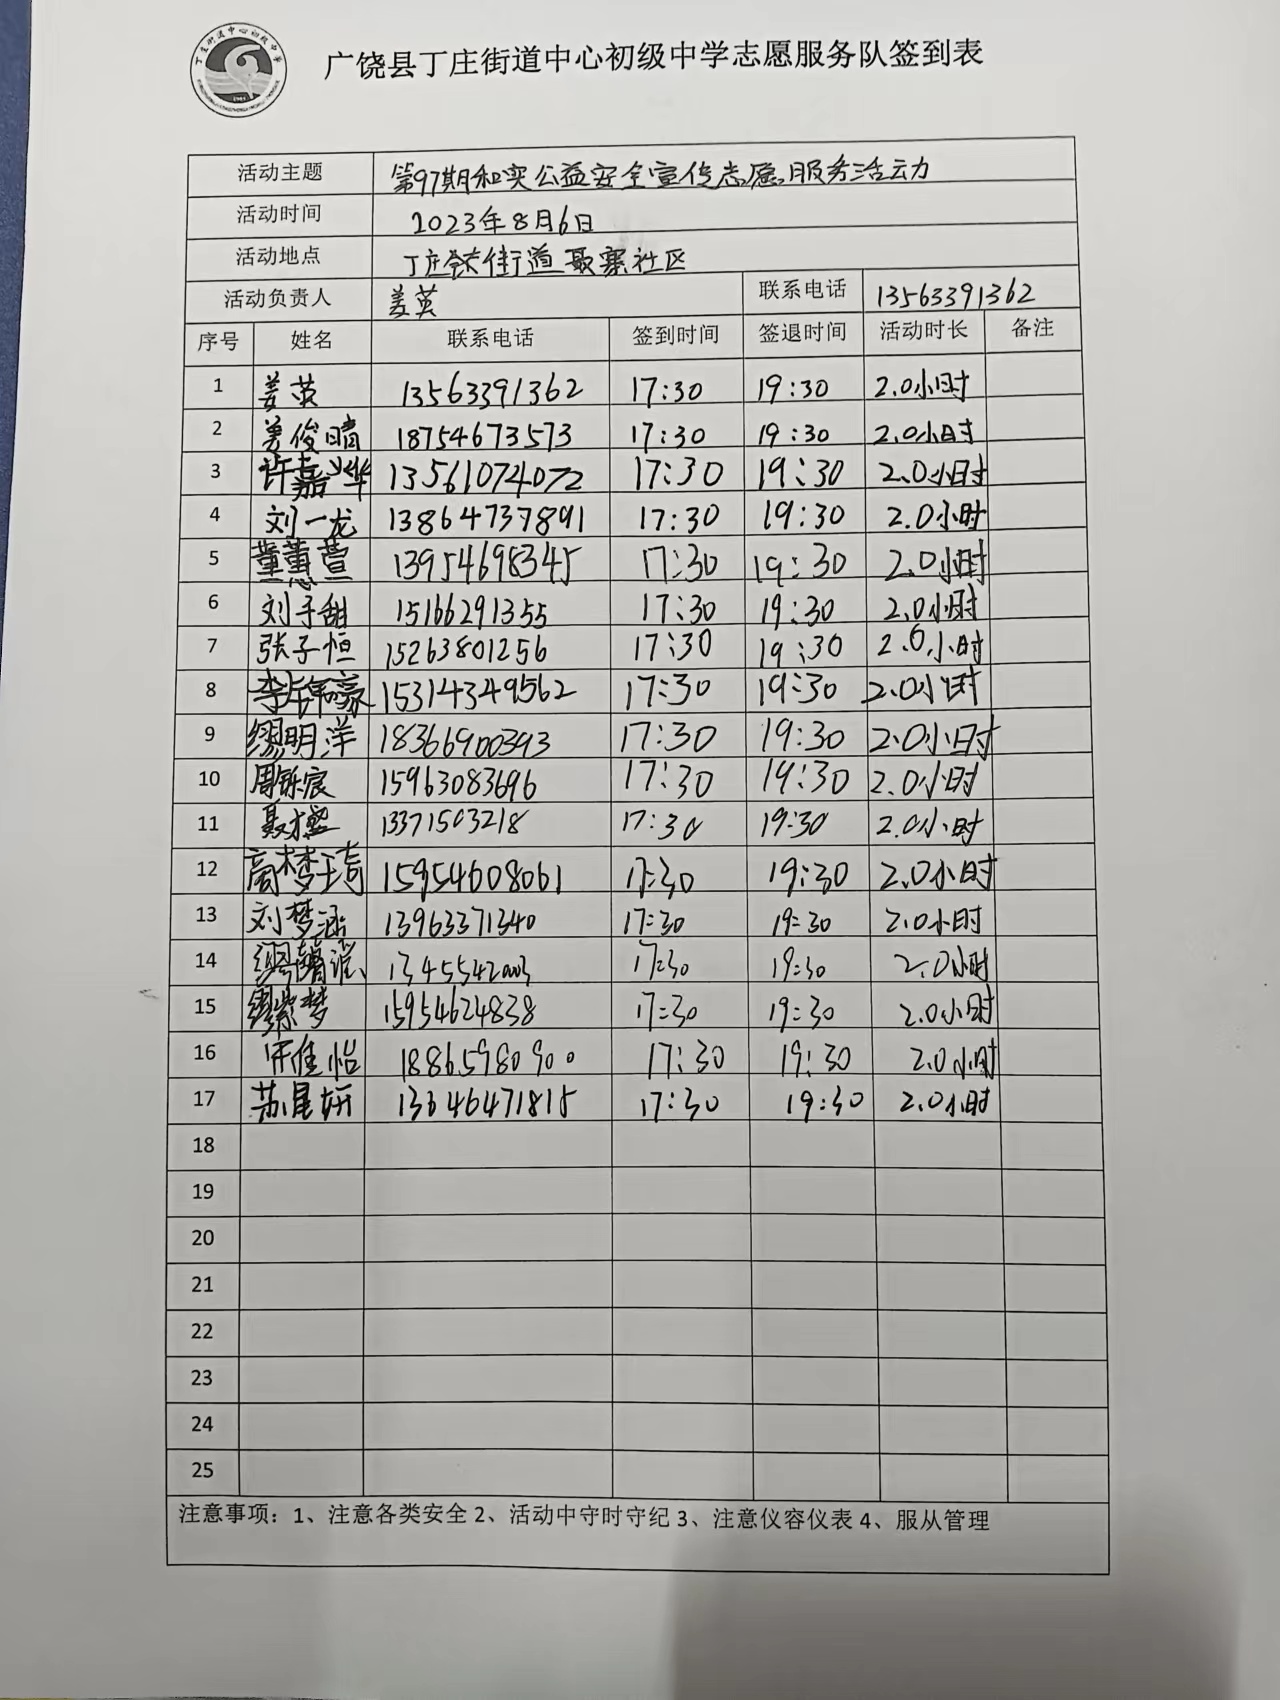 广饶县丁庄街道中心初级中学志愿服务队签到表
活动主题 第97期和奕公益安全宣传志愿服务活动
活动时间 2023年8月6日
活动地点 丁庄街道聂寨社区
活动负责人 姜英 联系电话 13563391362
序号 姓名 联系电话 签到时间 签退时间 活动时长 备注
1 姜英 13563391362 17:30 19:30 2.0小时
2 姜俊晴 18754673573 17:30 19:30 2.0小时
3 许嘉华 13561074072 17:30 19:30 2.0小时
4 刘一龙 13864737891 17:30 19:30 2.0小时
5 董蕙萱 13954698345 17:30 19:30 2.0小时
6 刘子甜 15166291355 17:30 19:30 2.0小时
7 张子恒 15263801256 17:30 19:30 2.0小时
8 15314349562 17:30 19:30 2.0小时
9 缪明洋 18366900393 17:30 19:30 2.0小时
10 周铄宸 15963083696 17:30 19:30 2.0小时
11 13371503218 17:30 19:30 2.0小时
12 高梦琦 15954608061 17:30 19:30 2.0小时
13 刘梦涵 13963371340 17:30 19:30 2.0小时
14 17:30 19:30 2.0小时
15 缪紫梦 15954624838 17:30 19:30 2.0小时
16 18865980900 17:30 19:30 2.0小时
17 苏星妍 13646471815 17:30 19:30 2.0小时
18
19
20
21
22
23
24
25
注意事项：1、注意各类安全 2、活动中守时守纪 3、注意仪容仪表 4、服从管理